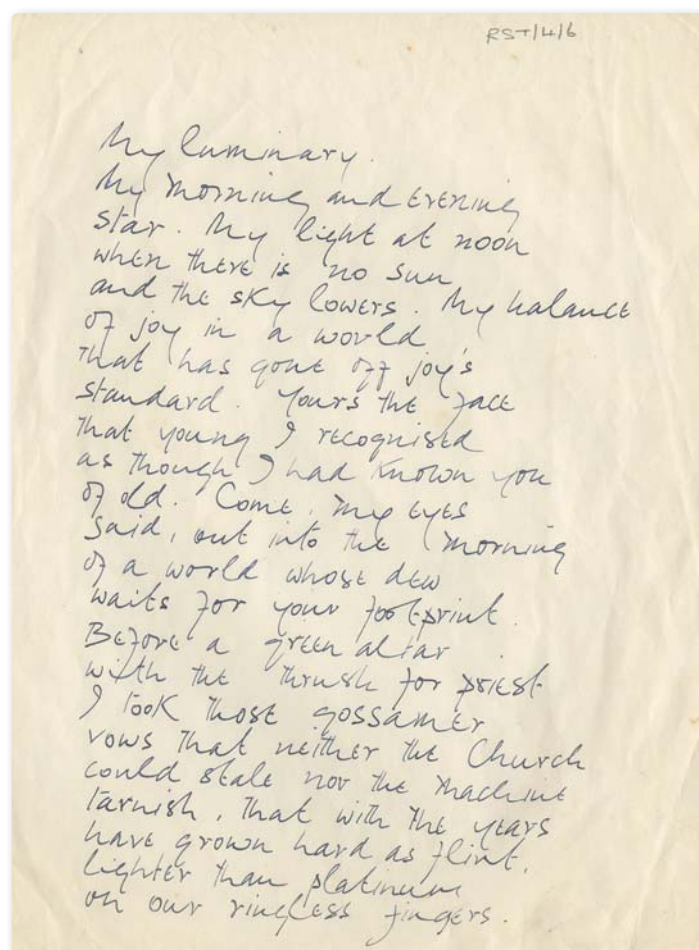 RST/4/6
My luminary.
My morning and evening
star. My light at noon
when there is no sun
and the sky lowers. My balance
of joy in a world
that has gone off joy's
standard. Yours the face
that young I recognised
as though I had known you
of old. Come, my eyes
said, out into the morning
of a world whose dew
waits for your footprint.
Before a green altar
with the thrush for priest
I took those gossamer
vows that neither the Church
could stale nor the machine
tarnish, that with the years
have grown hard as flint,
lighter than platinum
on our ringless fingers.